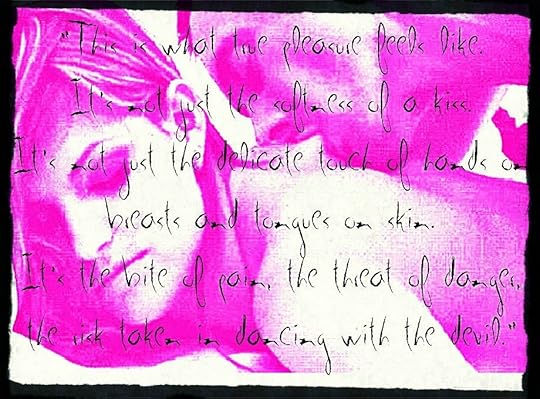 "This is what true pleasure feels like.
It's not just the softness of a kiss.
It's not just the delicate touch of hands on
breasts and tongues on skin.
It's the bite of pain, the threat of danger,
the risk taken in dancing with the devil."